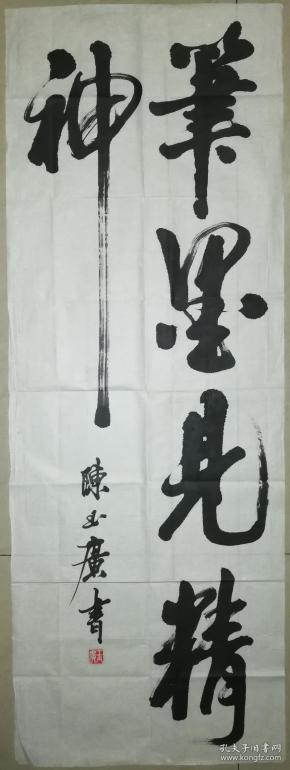 筆墨見精
神
陳玉廣書
孔夫子旧书网
www.kongfz.com